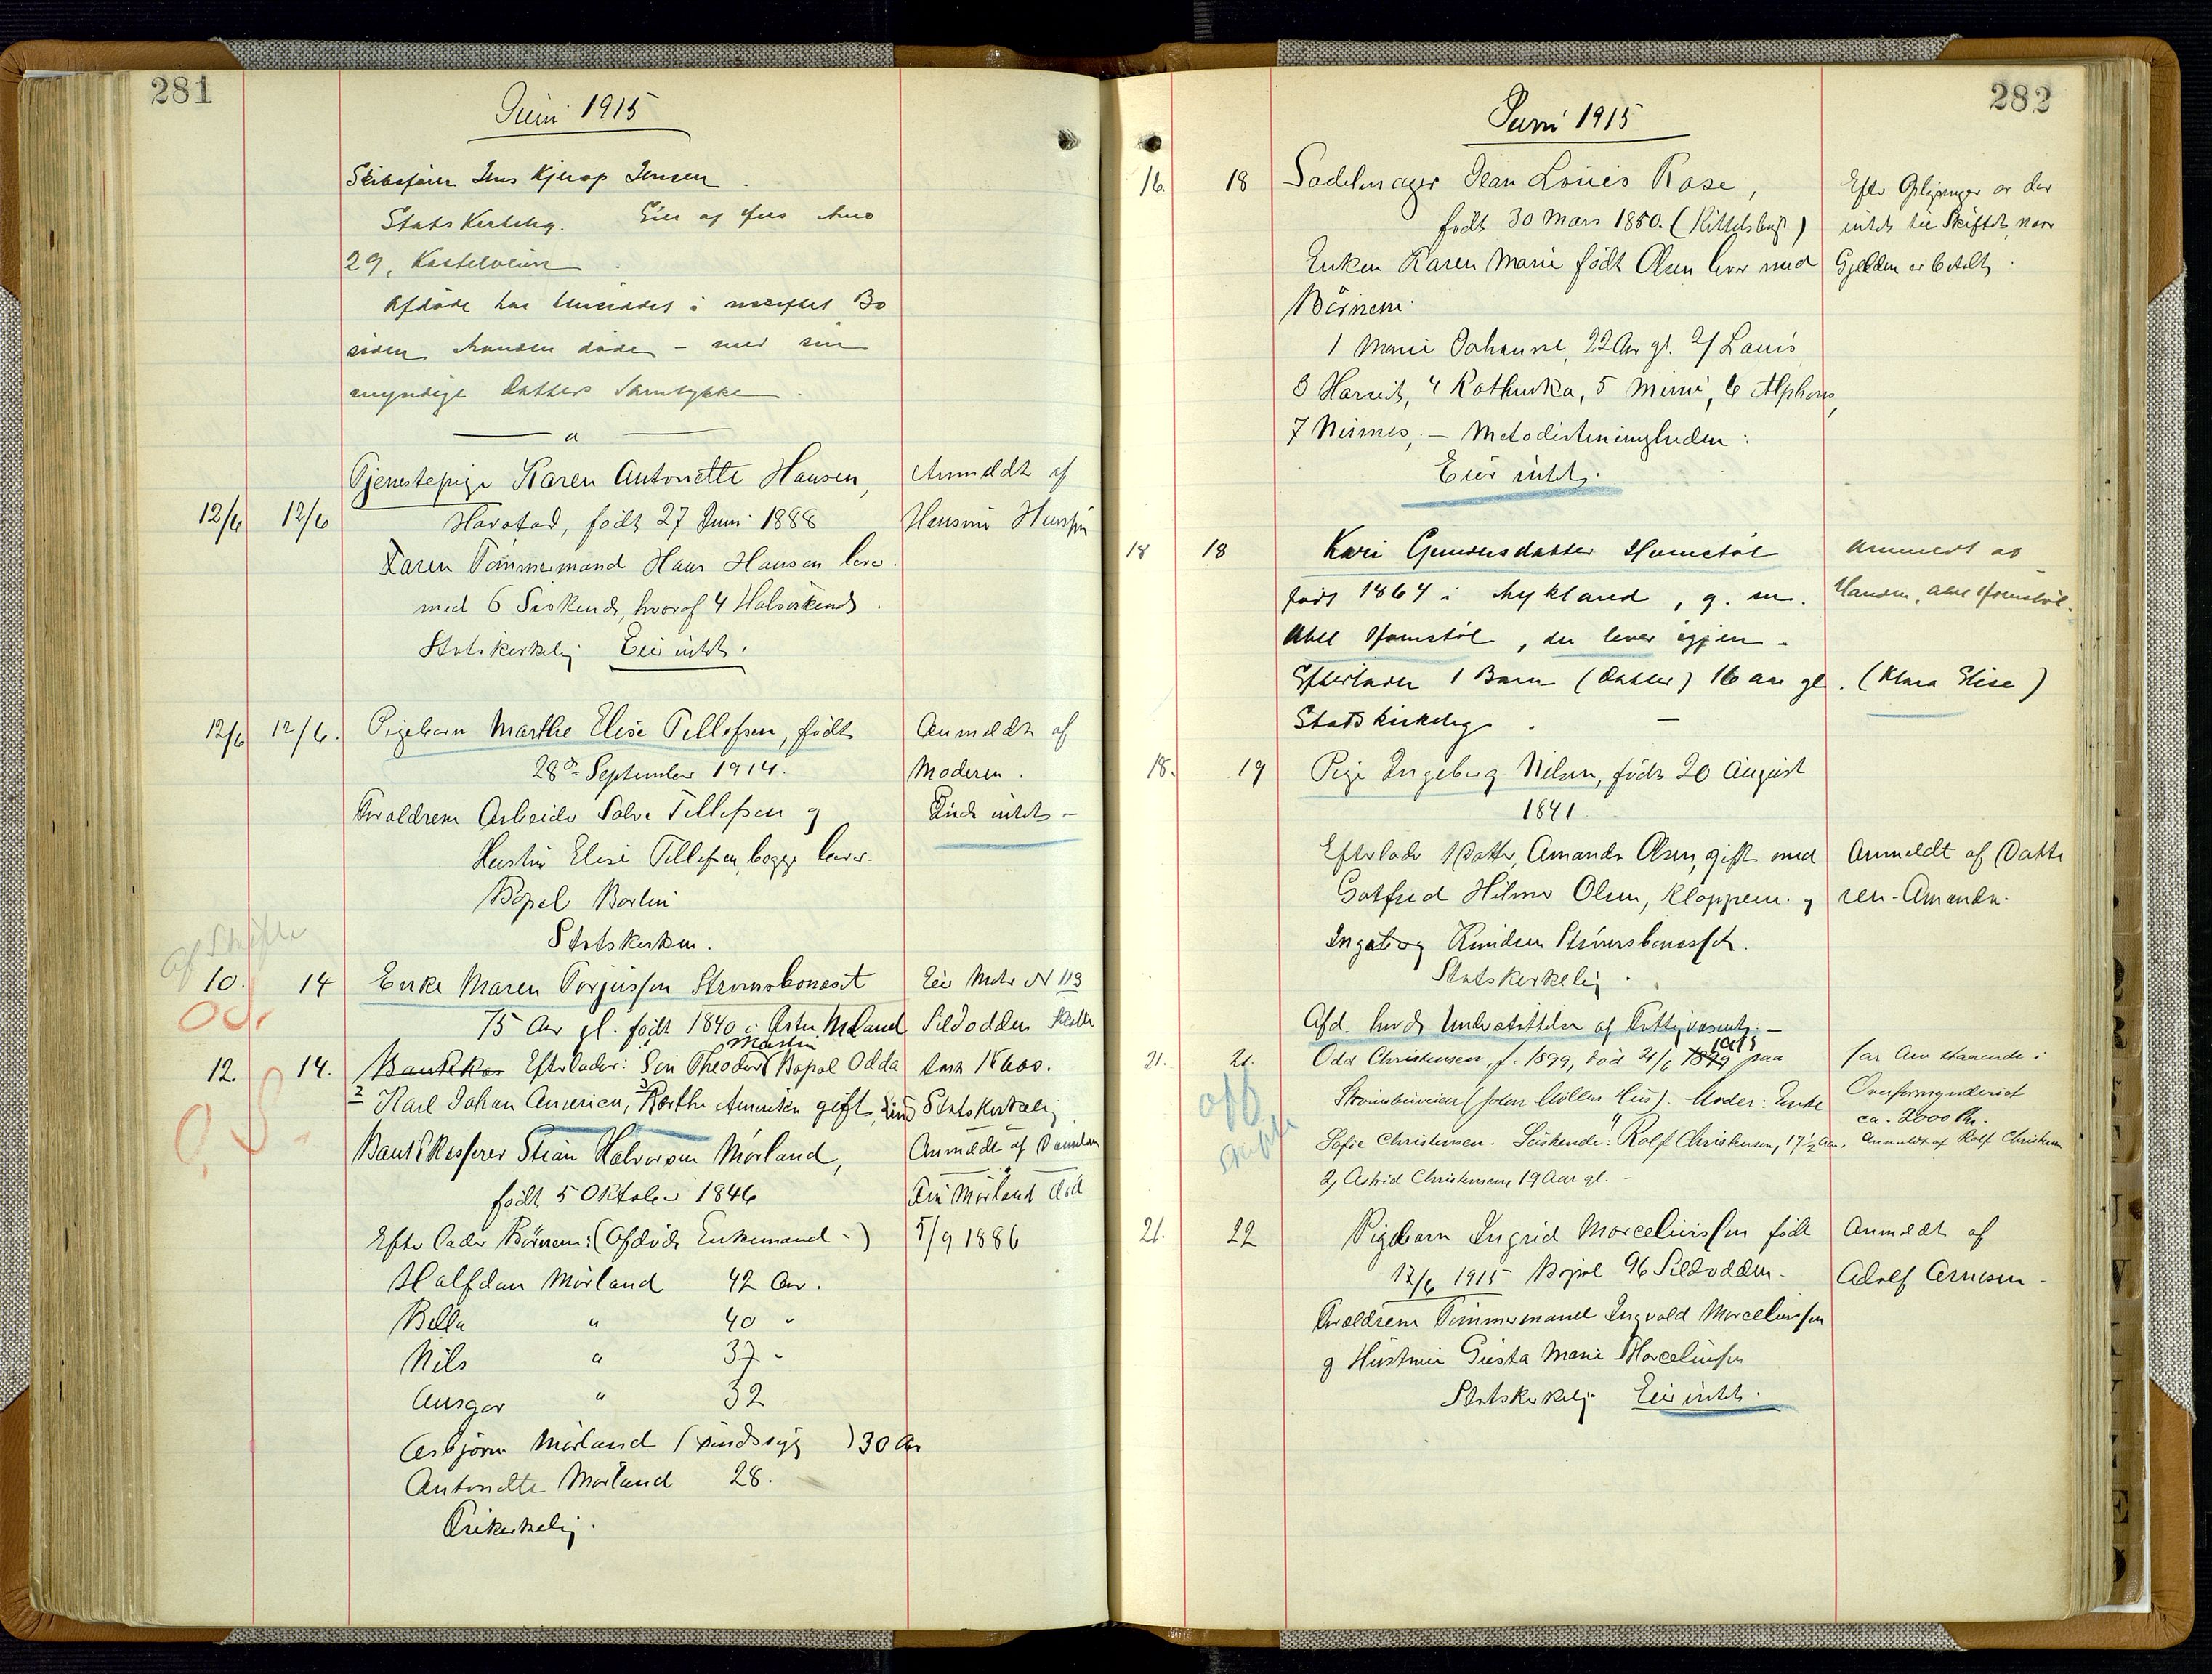 281
Juni 1915
Skibsfører Jens Kjerop Jensen.
Statskirkelig. Eier af Hus No
29, Kastelveien
Afdøde har hensiddet i uskiftet Bo
siden Manden døde – med sin
myndige Datters Samtykke.
Tjenestepige Karen Antonette Hansen,
Anmeldt af
12/6 12/6
Harstad, født 27 Juni 1888
Faren Tømmermand Hans Hansen lever.
med 6 Søskende, hvoraf 4 Halvsøskende.
Statskirkelig Eier intet.
12/6 12/6.
Pigebarn Marthe Elise Tellefsen, født
Anmeldt af
28de September 1914.
Moderen.
Forældrene Arbeider Salve Tellefsen og
Eiede intet –
Hustru Elise Tellefsen, begge lever.
Bopel Barlin
Statskirken.
Af Skifte
10. 14
Enke Maren Torjussen Strømsbonesset
Eier Matr N 113
75 Aar gl. født 1840 i Østre Moland
Sildodden
12. 14.
Efterlader: Søn Theodor Martin Bopæl Odda
Takst 1600.
2 Karl Johan America, 3 Berthe Amerika gift,
Statskirkelig
Bankkasserer Stian Halvorsen Mørland,
Anmeldt af
født 5 Oktober 1846
Fru Mørland død
Efterlader Børnene: (Afdøde Enkemand –)
5/9 1886
Halfdan Mørland 42 Aar.
Bella " 40 "
Nils " 37 "
Ansgar " 32
Asbjørn Mørland (sindssyg) 30 Aar
Antonette Mørland 28.
Frikirkelig.
282
Juni 1915
16. 18
Sadelmager Jean Louis Rose,
Efter Gjeldspenger er der
født 30 Mars 1850. (Kittelsbugt)
intet til Skiftet, naar
Enken Karen Marie født Olsen lever med
Gjelden er betalt.
Børnene
1 Marie Johanne, 22 Aar gl. 2/ Louis,
3 Harriet, 4 Kathinka, 5 Mimi, 6 Alphons,
7 – Metodistmenigheden:
Eier intet.
18 18
Kari Gunvorsdatter Homstøl
Anmeldt av
født 1864 i Mykland, g. m.
Manden, Abel Homstøl.
Abel Homstøl, der lever igjen –
Efterlader 1 Barn (Datter) 16 aar gl. (Klara Elise)
Statskirkelig.
18. 19
Pige Ingeborg Nilsen, født 20 August
1841
Efterlader 1 Datter, Amanda Olsen, gift med
Anmeldt af Datte
Gotfred Hilmer Olsen, Kloppene. og
ren – Amanda.
Ingeborg Knudsen Strømsbonesset.
Statskirkelig.
Afd. havde Understøttelse af Fattigvæsenet. –
21. 21.
Odd Christensen, f. 1899, død 21/6 1915 paa
far Arv staaende i
Strømsbuveien (Søren Møllers Hus). Moder: Enke
Overformynderiet
ca. 2000 Kr.
off
Skifte
Sofie Christensen. Søskende: Rolf Christensen, 17½ Aar,
Anmeldt af Rolf Christensen
2) Astrid Christensen, 19 Aar gl. –
21. 22
Pigebarn Ingrid Marceliussen født
Anmeldt af
12/6 1915 Bopel 96 Sildodden –
Adolf Arnesen –
Forældrene Tømmermand Ingvald Marceliussen
og Hustru Gusta Marie Marceliussen
Statskirkelig Eier intet.